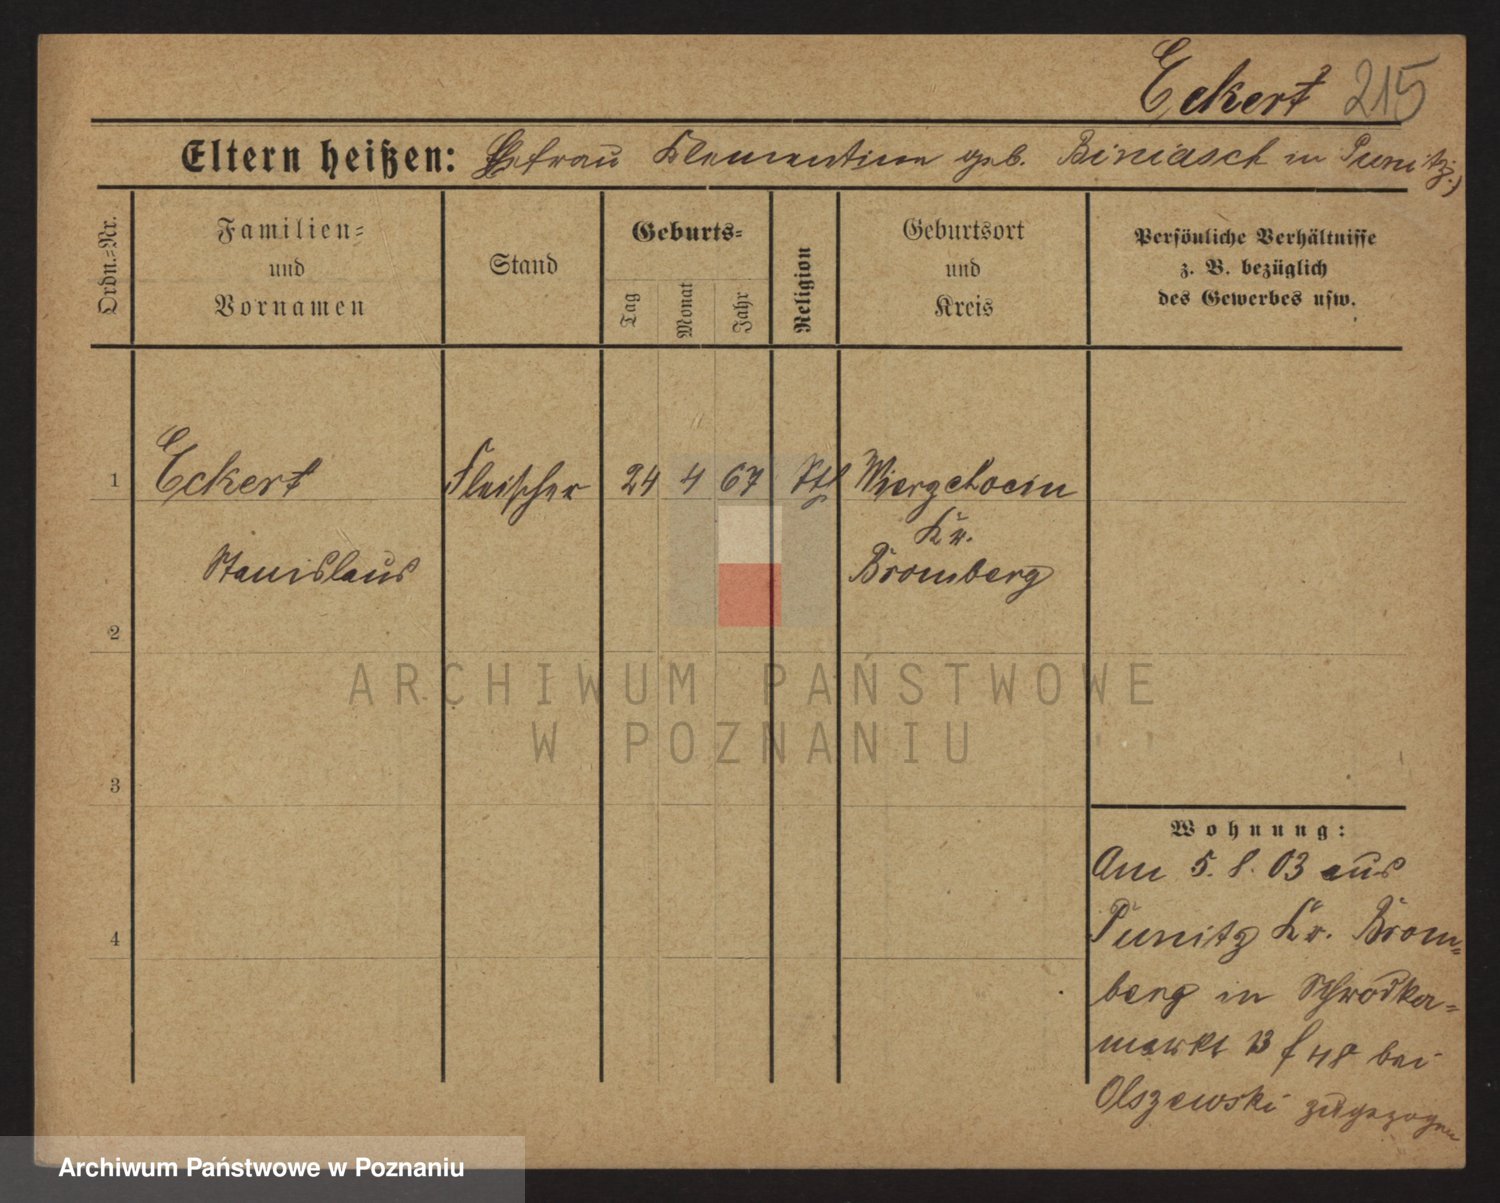 Eckert 215
Eltern heißen: Ehefrau Klementine geb. Biniasch in Punitz.)
Ordn.=Nr.
Familien=
und
Vornamen
Stand
Geburts=
Tag
Monat
Jahr
Religion
Geburtsort
und
Kreis
Persönliche Verhältnisse
z. B. bezüglich
des Gewerbes usw.
1 Eckert Fleischer 24 4 67 Ktl Wierzchocin
Kr.
Stanislaus Bromberg
2
ARCHIWUM PAŃSTWOWE
W POZNANIU
3
Wohnung:
Am 5. 8. 03 aus
4 Punitz Kr. Brom=
berg in Schrodka=
markt 13 bei
Olszewski zugezogen
Archiwum Państwowe w Poznaniu